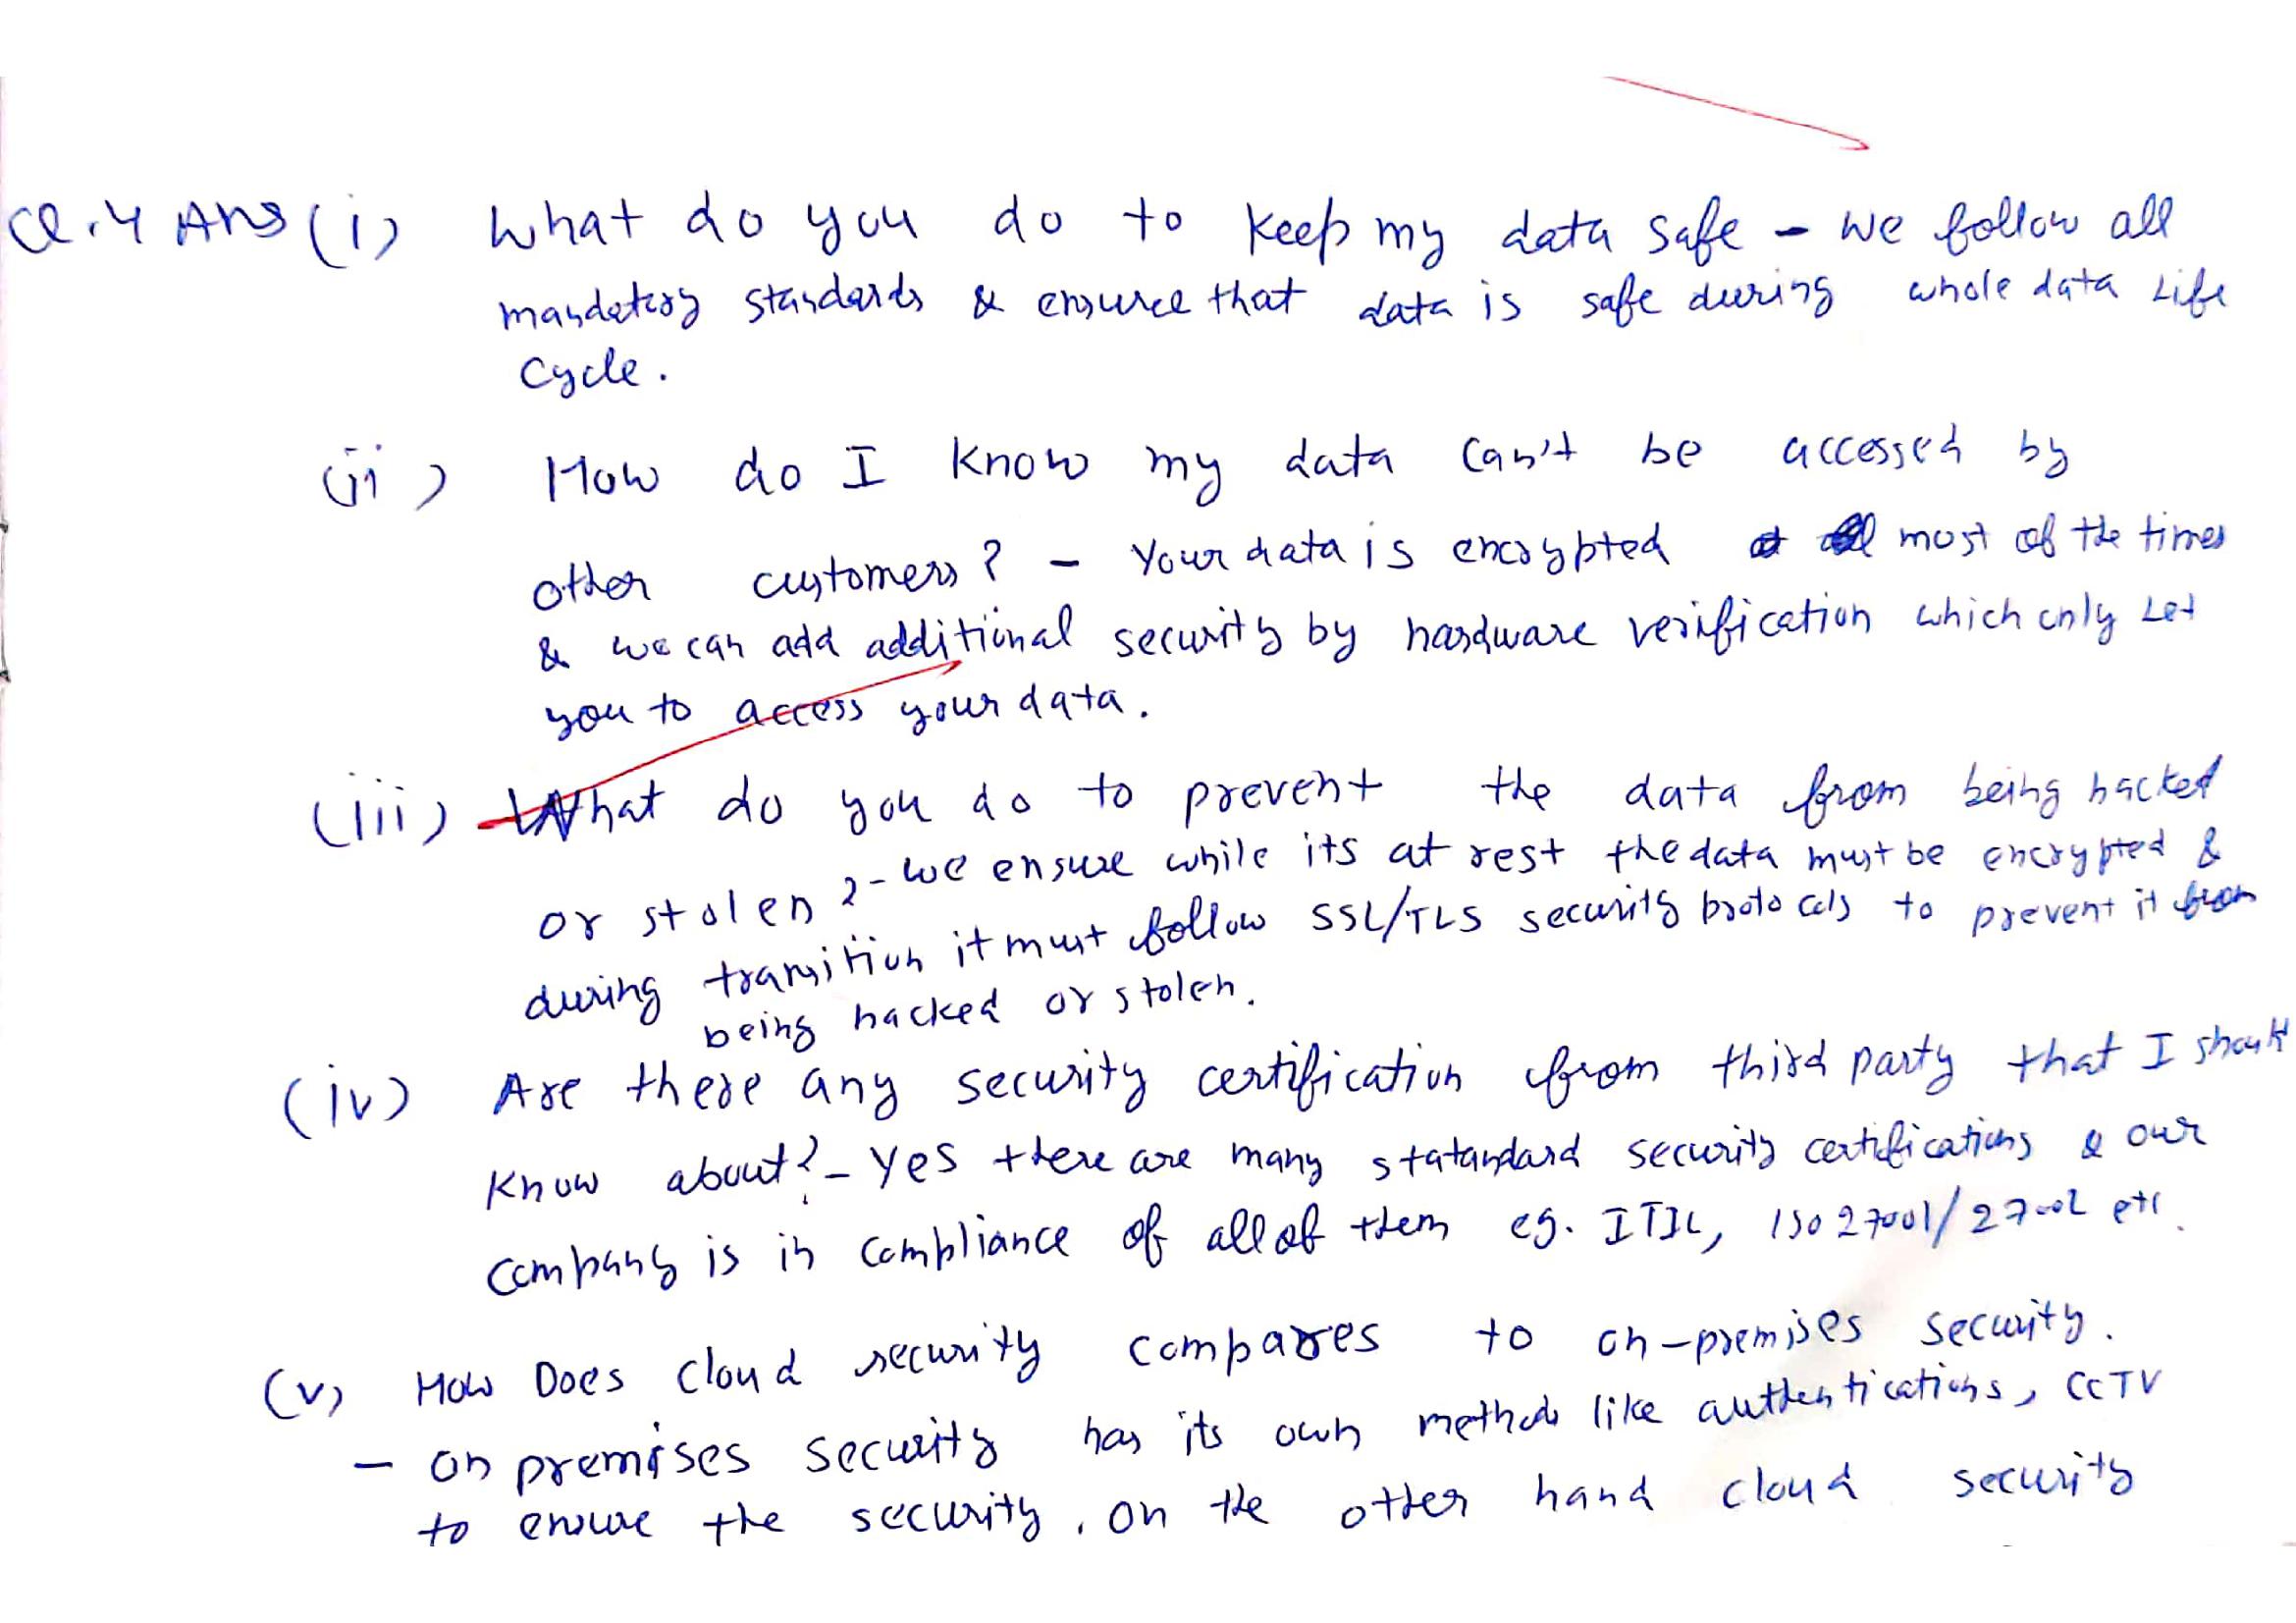 Q.4 Ans (i) What do you do to keep my data safe - We follow all
mandatory standards & ensure that data is safe during whole data Life
Cycle.
(ii) How do I know my data can't be accessed by
other customers? - Your data is encrypted most of the times
& we can add additional security by hardware verification which only Let
you to access your data.
(iii) What do you do to prevent the data from being hacked
or stolen ? - We ensure while its at rest the data must be encrypted &
during transition it must follow SSL/TLS security protocals to prevent it from
being hacked or stolen.
(iv) Are there any security certification from third party that I should
Know about? - Yes there are many statandard security certifications & our
company is in compliance of all of them eg. ITIL, ISO 27001/27002 etc.
(v) How Does cloud security compares to on-premises security.
- On premises security has its own methods like authentications, CCTV
to ensure the security. On the other hand cloud security